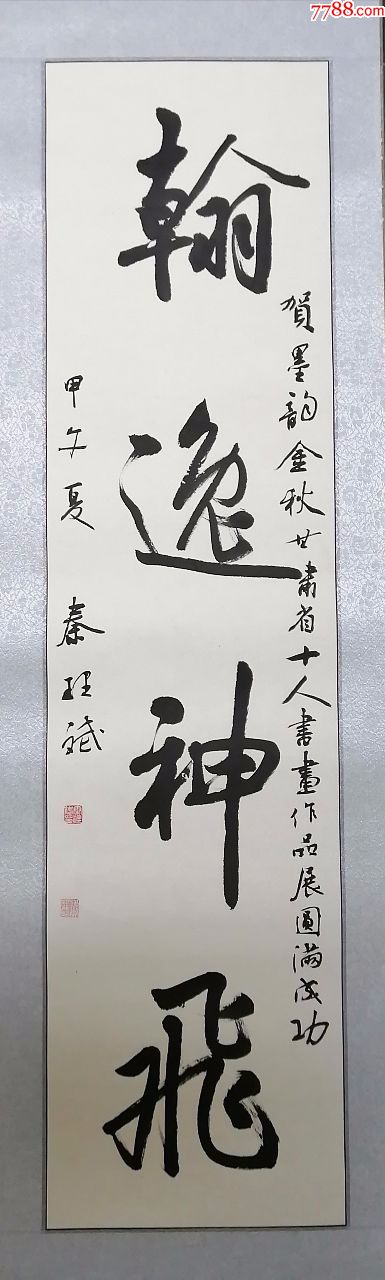 7788.com
翰逸神飛
賀墨韵金秋甘肅省十人書畫作品展圓滿成功
甲午夏
秦理斌